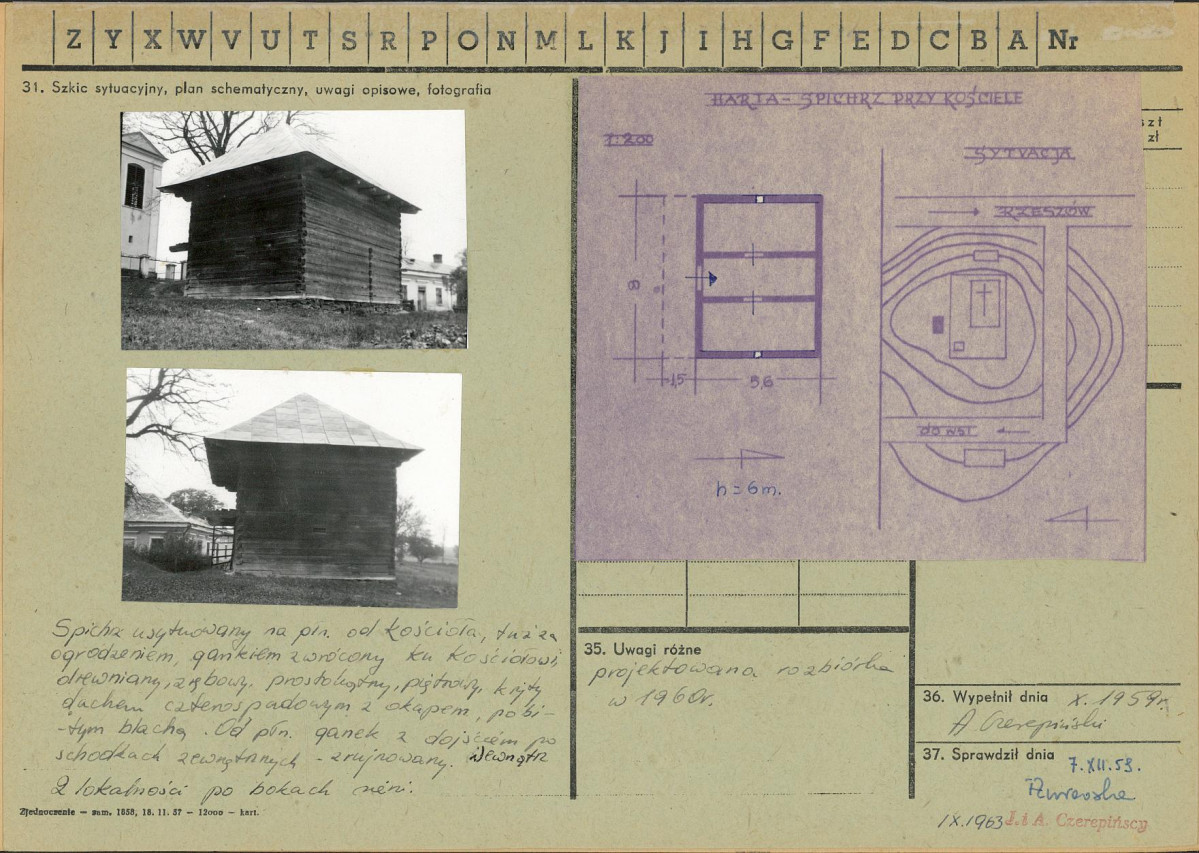 Z Y X W V U T S R P O N M L K J I H G F E D C B A Nr
31. Szkic sytuacyjny, plan schematyczny, uwagi opisowe, fotografia
HARTA - SPICHRZ PRZY KOŚCIELE
1:200
SYTUACJA
RZESZÓW
8
1,5
5,6
h = 6 m.
do wsi
szt
zł
Spichrz usytuowany na płn. od kościoła, tuż za
ogrodzeniem, gankiem zwrócony ku kościołowi,
drewniany, zrębowy, prostokątny, piętrowy, kryty
dachem czterospadowym z okapem, pobi-
-tym blachą. Od płn. ganek z dojściem po
schodkach zewnętrznych - zrujnowany. Wewnątrz
2 lokalności po bokach sieni.
Zjednoczenie — zam. 1858, 18. 11. 57 — 12000 — kart.
35. Uwagi różne
projektowana rozbiórka
w 1960r.
36. Wypełnił dnia X. 1959r.
A Czerepiński
37. Sprawdził dnia 7.XII.59.
IX.1963 J. i A. Czerepińscy